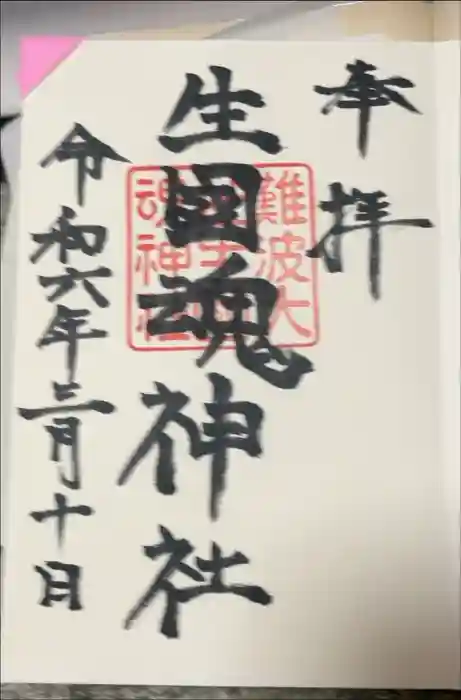 奉拝
生國魂神社
難波大
魂神社
令和六年三月十日